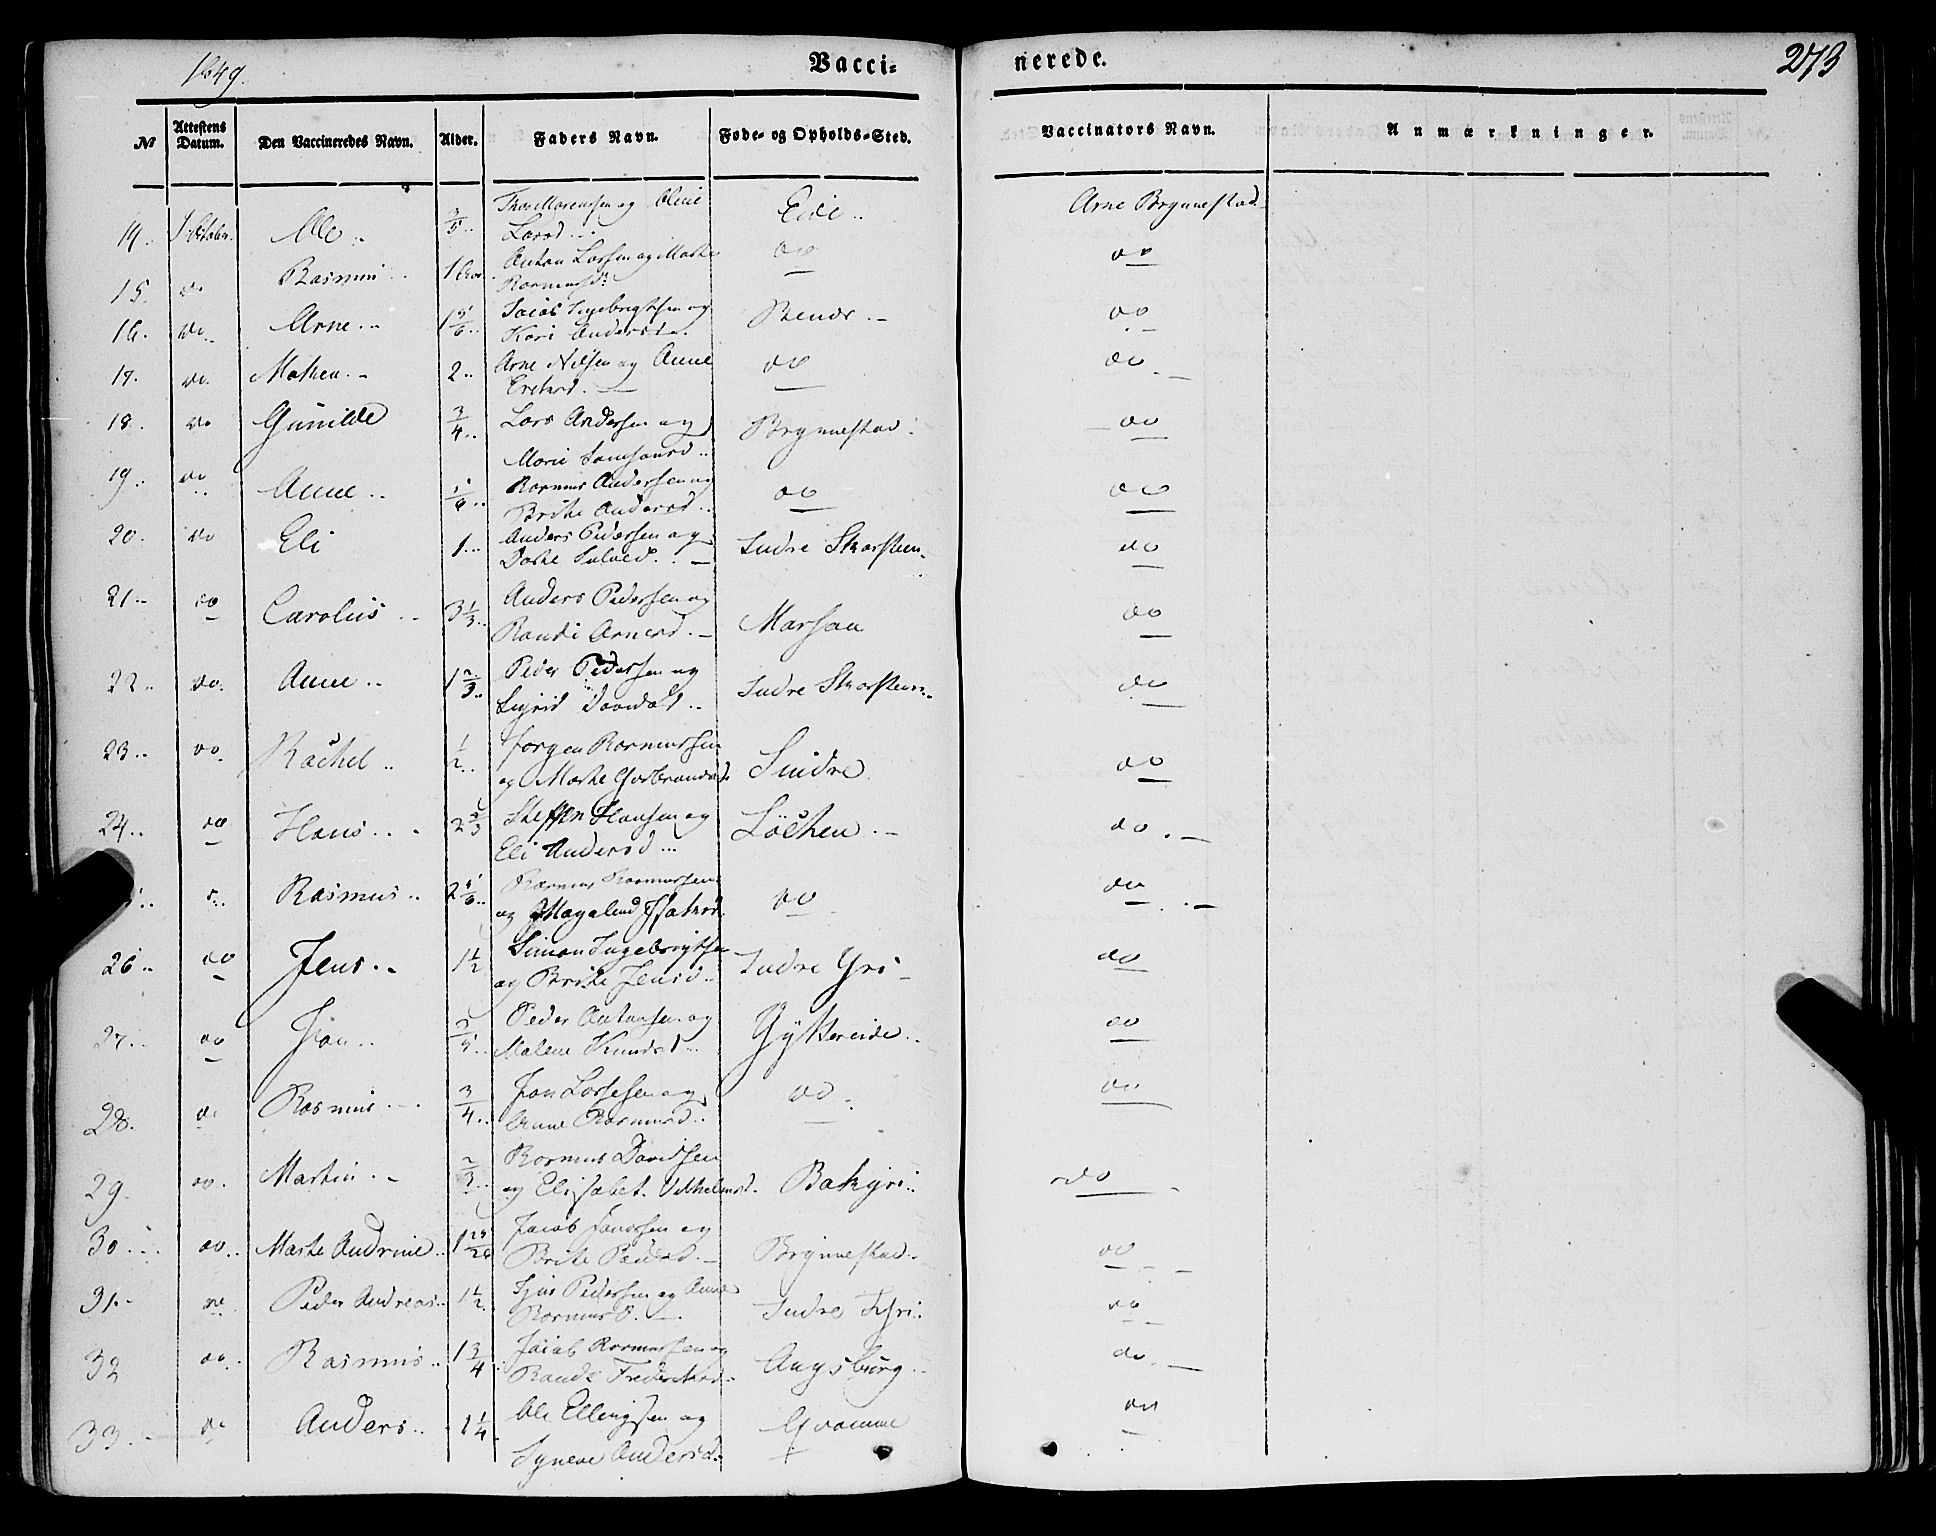 1849. Vacci- nerede. 273
№ Attestens Datum. Den Vaccineredes Navn. Alder. Faders Navn. Føde- og Opholds-Sted. Vaccinators Navn. Anmærkninger.
14.. October. Ole.. 3/5.. Morenssen og Oline Larsd... Eide.. Arne Brynnestad
15. do Rasmus.. 1 Anton Larssen og Marthe Rasmusd. do do
16. do.. Arne.. 1 5/6.. Jacob Ingebrigtsen og Kari Andersd. do
17. do. Mathea.- 2.. Arne Nilsen og Anne do do.-
18. do Gunilde 3/4.. Lars Andersen og Marie Samsonsd.. Brynnestad. do
19.. do.. Anne.. /6.. Rasmus Andersen og Brithe Andersd.. do do
20. do Eli 1... Anders Pedersen og Indre Skarsteen. do
21.. do Carolus.. 3 1/3.. Anders Pedersen og Randi Arnesd.- Marsaa do
22.. do. Anne.. 1 2/3.. Peder Pedersen og Sigrid Indre Skarsteen.. do
23.. do. Rachel.. 1/2.. Jørgen Rasmussen og Marthe Gudbrandsd Sindre do
24.. do Hans... 2 2/3 Steffen Hansen og Eli Andersd... Löchen.- do.-
Rasmus.. 2 /6.. Rasmus Rasmussen og Magalend do do.-
26.. do Jens.- 1 1/2 Simon Ingebrigtsen og Brithe Jensd.. Indre Gri- do
27.. do Jon.. /5.. Peder Antonsen og Malene Knudsd.. Gyttereide.. do
28. do Rasmus.-. 3/4.. Jon Lassesen og Anne Rasmusd.. do. do
29. do. Martin.- 2/3.. Rasmus Davidsen og Elisabet Vilhelmsd. Bakgri.. do
30... do.. Marthe Andrine.. 1 Jacob og Brithe Pedersd.- Brynnestad.. do
31.- Peder Andreas.. 1 1/2 Pedersen og Anne Rasmusd.- Indre Gri. do
32 do.. Rasmus.. 1 3/4 Jacob Rasmussen og Rande Frederiksd.. Augsburg.. do.-
33.. do Anders.. 1 1/4 Ole Ellingsen og Synneve Andersd. Qvamme do